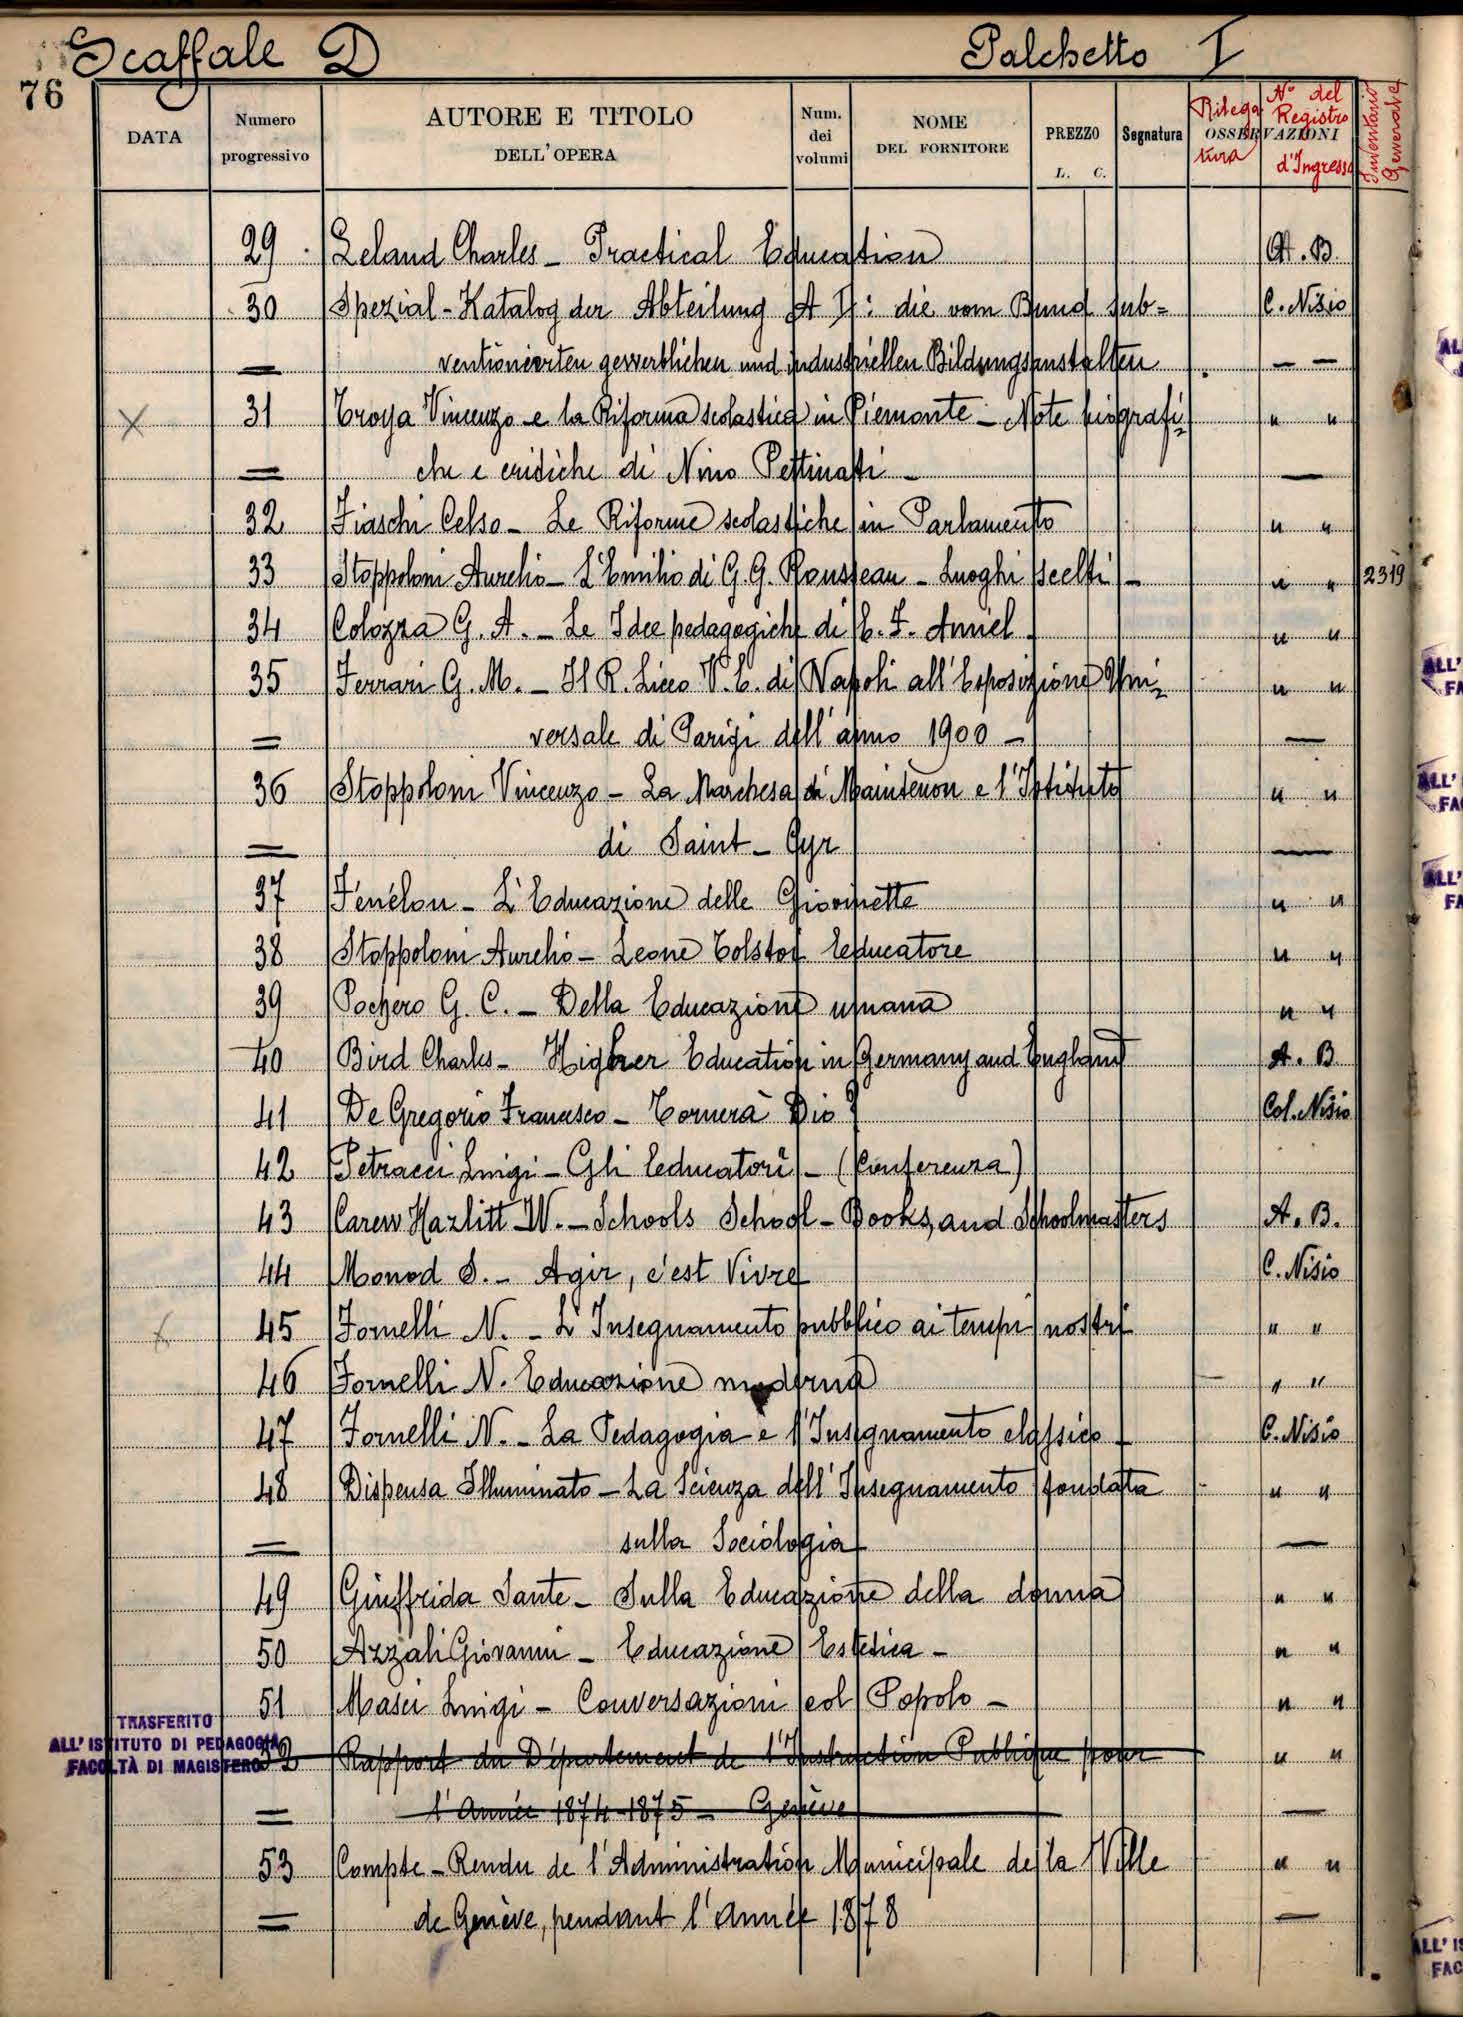 Scaffale D Palchetto I
76
DATA Numero progressivo AUTORE E TITOLO DELL'OPERA Num. dei volumi NOME DEL FORNITORE PREZZO L. C. Segnatura OSSERVAZIONI Rilegatura N° del Registro d'Ingresso Inventario Generale
29 Leland Charles - Practical Education A. B.
30 Spezial-Katalog der Abteilung A I: die vom Bund sub= C. Nisio
= ventionierten gewerblichen und industriellen Bildungsanstalten — —
31 Troya Vincenzo e la Riforma scolastica in Piemonte - Note biografi= " "
= che e critiche di Nino Pettinati - —
32 Fiaschi Celso - Le Riforme scolastiche in Parlamento " "
33 Stoppoloni Aurelio - L'Emilio di G. G. Rousseau - Luoghi scelti - " " 2319
34 Colozza G. A. - Le Idee pedagogiche di E. F. Amiel - " "
35 Ferrari G. M. - Il R. Liceo V. E. di Napoli all'Esposizione Uni= " "
= versale di Parigi dell'anno 1900 - —
36 Stoppoloni Vincenzo - La Marchesa di Maintenon e l'Istituto " "
= di Saint-Cyr —
37 Fénélon - L'Educazione delle Giovinette " "
38 Stoppoloni Aurelio - Leone Tolstoi Educatore " "
39 G. C. - Della Educazione umana " "
40 Bird Charles - Higher Education in Germany and England A. B
41 De Gregorio Francesco - Tornerà Dio? Col. Nisio
42 Petracci Luigi - Gli Educatori - (Conferenza)
43 Carew Hazlitt W. - Schools School-Books, and Schoolmasters A. B.
44 Monod S. - Agir, c'est Vivre C. Nisio
45 Fornelli N. - L'Insegnamento pubblico ai tempi nostri " "
46 Fornelli N. Educazione moderna " "
47 Fornelli N. - La Pedagogia e l'Insegnamento classico - C. Nisio
48 Dispensa Illuminato - La Scienza dell'Insegnamento fondata " "
= sulla Sociologia —
49 Giuffrida Sante - Sulla Educazione della donna " "
50 Azzali Giovanni - Educazione Estetica - " "
51 Masci Luigi - Conversazioni col Popolo - " "
TRASFERITO
ALL' ISTITUTO DI PEDAGOGIA
FACOLTÀ DI MAGISTERO
52 Rapport du Département de l'Instruction Publique pour " "
= l'Année 1874-1875 - Genève —
53 Compte-Rendu de l'Administration Municipale de la Ville " "
= de Genève, pendant l'année 1878 —